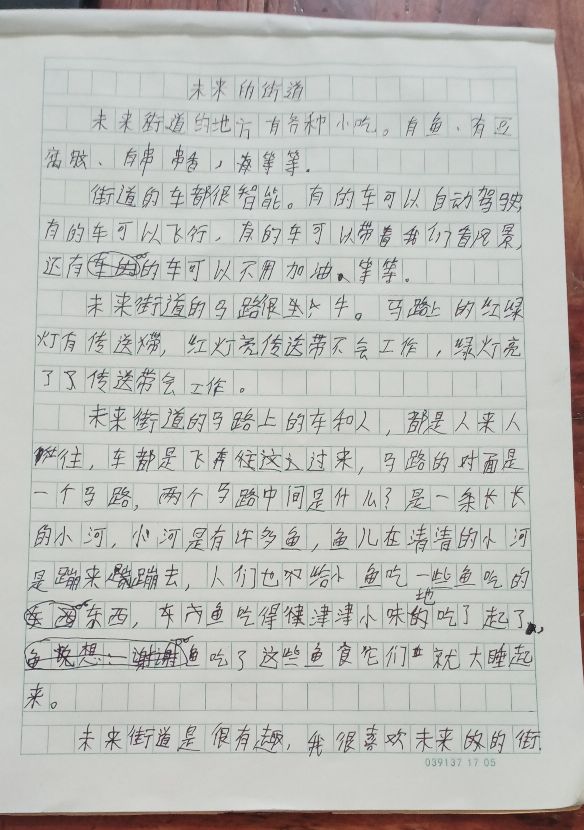 未来的街道
未来街道的地方有各种小吃。有鱼、有豆
腐脑、有串串香,有等等。
街道的车都很智能。有的车可以自动驾驶,
有的车可以飞行,有的车可以带着我们看风景,
还有的车可以不用加油、等等。
未来街道的马路很牛。马路上的红绿
灯有传送带,红灯亮传送带不会工作,绿灯亮
了了传送带会工作。
未来街道的马路上的车和人,都是人来人
往,车都是飞奔往这过来,马路的对面是
一个马路,两个马路中间是什么?是一条长长
的小河,小河是有许多鱼,鱼儿在清清的小河
是蹦来蹦去,人们也给小鱼吃一些鱼吃的
东西,鱼吃得津津小味地吃了起了,
鱼吃了这些鱼食它们就大睡起
来。
未来街道是很有趣,我很喜欢未来的街
039137 17 05